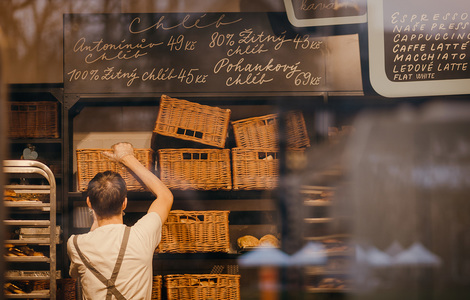 Chléb
Antonínův 49 Kč
chléb
80% Žitný 43 Kč
chléb
100% Žitný chléb 45 Kč
Pohankový
chléb 69 Kč
karvan
ESPRESSO
NAŠE PRESS
CAPPUCCINO
CAFFE LATTE
MACCHIATO
LEDOVÉ LATTE
FLAT WHITE